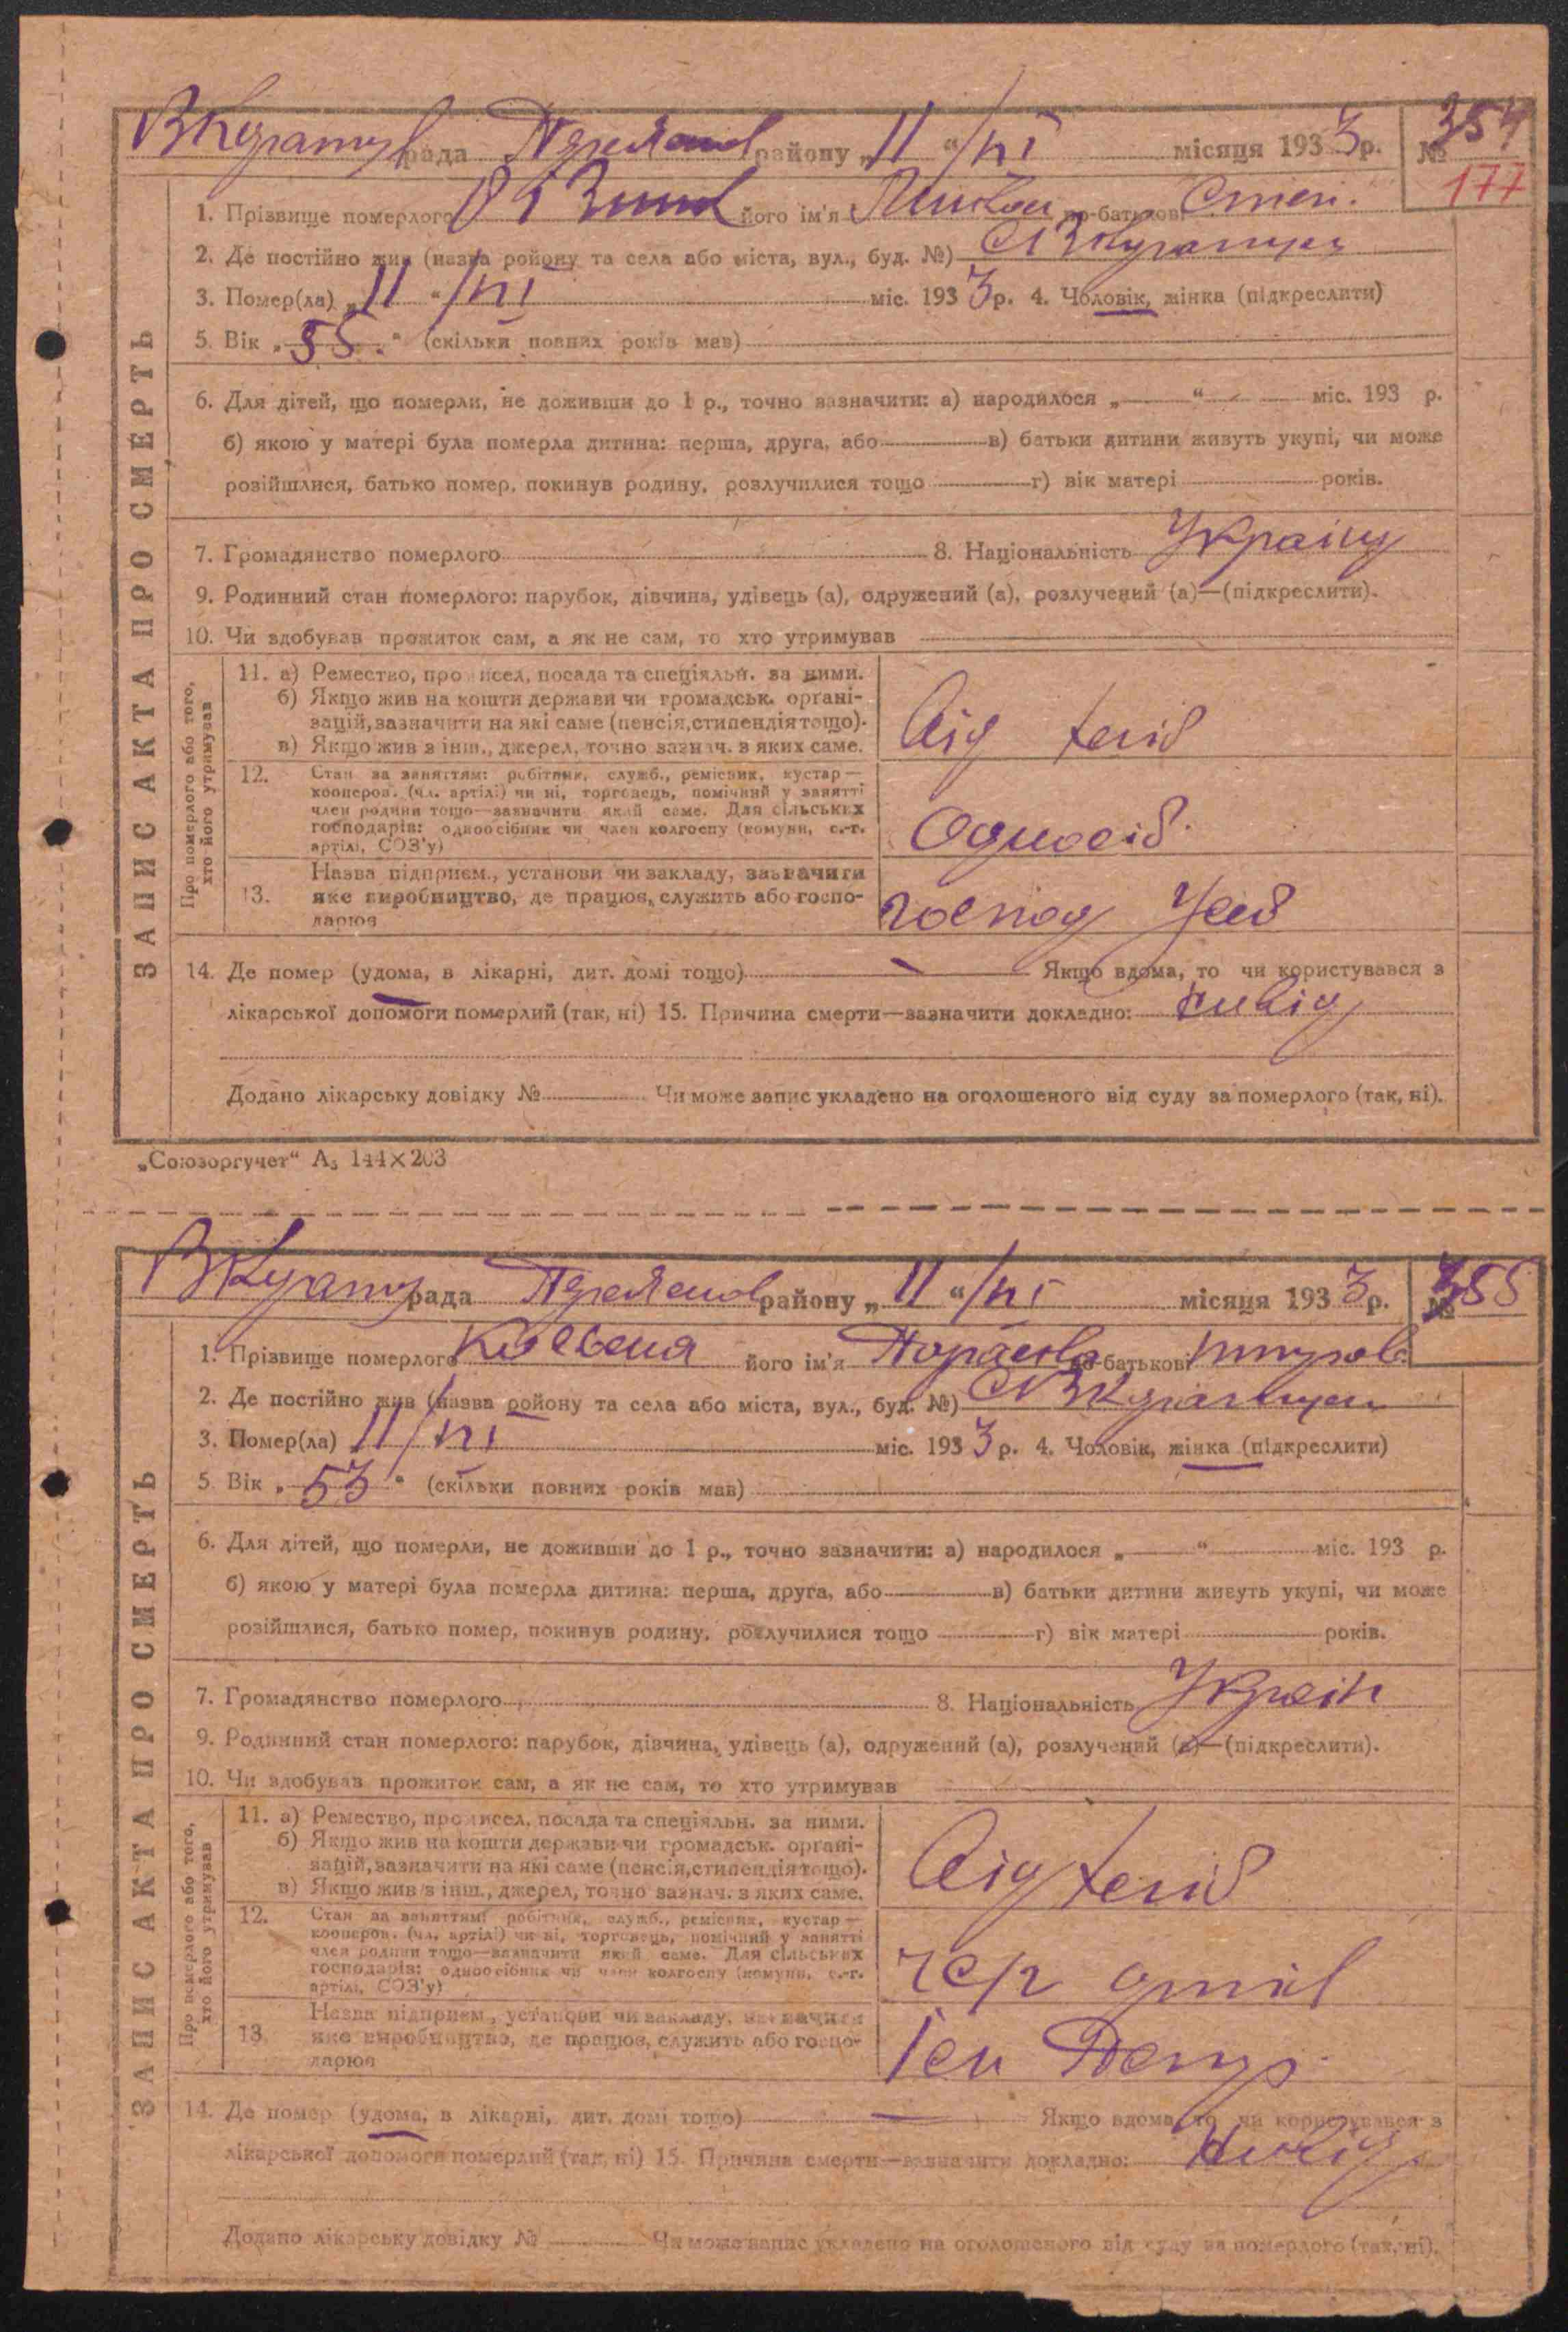 рада району „ 11 “ /VI місяця 1933 р. № 354
177
1. Прізвище померлого його ім'я по-батькові Степ.
2. Де постійно жив (назва ройону та села або міста, вул., буд. №)
3. Помер(ла) „ 11 “ /VI міс. 1933 р. 4. Чоловік, жінка (підкреслити)
5. Вік „ 55. “ (скільки повних років мав)
6. Для дітей, що померли, не доживши до 1 р., точно зазначити: а) народилося „ “ міс. 193 р.
б) якою у матері була померла дитина: перша, друга, або в) батьки дитини живуть укупі, чи може
розійшлися, батько помер, покинув родину, розлучилися тощо г) вік матері років.
7. Громадянство померлого 8. Національність Україн
9. Родинний стан померлого: парубок, дівчина, удівець (а), одружений (а), розлучений (а)—(підкреслити).
10. Чи здобував прожиток сам, а як не сам, то хто утримував
ЗАПИС АКТА ПРО СМЕРТЬ
Про померлого або того, хто його утримував
11. а) Ремество, промисел, посада та спеціяльн. за ними.
б) Якщо жив на кошти держави чи громадськ. органі-
зацій, зазначити на які саме (пенсія, стипендія тощо).
в) Якщо жив з інш., джерел, точно зазнач. з яких саме.
12. Стан за заняттям: робітник, служб., ремісник, кустар—
кооперов. (чл. артілі) чи ні, торговець, помічний у занятті
член родини тощо—зазначити який саме. Для сільських
господарів: одноосібник чи член колгоспу (комуни, с.-г.
артілі, СОЗ'у)
Одноосіб.
13. Назва підприєм., установи чи закладу, зазначити
яке виробництво, де працює, служить або госпо-
дарює
господ
14. Де помер (удома, в лікарні, дит. домі тощо) Якщо вдома, то чи користувався з
лікарської допомоги померлий (так, ні) 15. Причина смерти—зазначити докладно:
Додано лікарську довідку № Чи може запис укладено на оголошеного від суду за померлого (так, ні).
„Союзоргучет“ А₅ 144×203
рада району „ 11 “ /VI місяця 1933 р. № 355
1. Прізвище померлого його ім'я по-батькові
2. Де постійно жив (назва ройону та села або міста, вул., буд. №)
3. Помер(ла) 11/VI міс. 1933 р. 4. Чоловік, жінка (підкреслити)
5. Вік „ 53 “ (скільки повних років мав)
6. Для дітей, що померли, не доживши до 1 р., точно зазначити: а) народилося „ “ міс. 193 р.
б) якою у матері була померла дитина: перша, друга, або в) батьки дитини живуть укупі, чи може
розійшлися, батько помер, покинув родину, розлучилися тощо г) вік матері років.
7. Громадянство померлого 8. Національність Україн
9. Родинний стан померлого: парубок, дівчина, удівець (а), одружений (а), розлучений (а)—(підкреслити).
10. Чи здобував прожиток сам, а як не сам, то хто утримував
ЗАПИС АКТА ПРО СМЕРТЬ
Про померлого або того, хто його утримував
11. а) Ремество, промисел, посада та спеціяльн. за ними.
б) Якщо жив на кошти держави чи громадськ. органі-
зацій, зазначити на які саме (пенсія, стипендія тощо).
в) Якщо жив з інш., джерел, точно зазнач. з яких саме.
12. Стан за заняттям: робітник, служб., ремісник, кустар—
кооперов. (чл. артілі) чи ні, торговець, помічний у занятті
член родини тощо—зазначити який саме. Для сільських
господарів: одноосібник чи член колгоспу (комуни, с.-г.
артілі, СОЗ'у)
13. Назва підприєм., установи чи закладу, зазначити
яке виробництво, де працює, служить або госпо-
дарює
14. Де помер (удома, в лікарні, дит. домі тощо) Якщо вдома, то чи користувався з
лікарської допомоги померлий (так, ні) 15. Причина смерти—зазначити докладно:
Додано лікарську довідку № Чи може запис укладено на оголошеного від суду за померлого (так, ні).